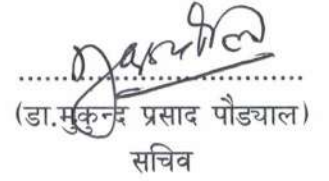 (डा.मुकुन्द प्रसाद पौड्याल)
सचिव